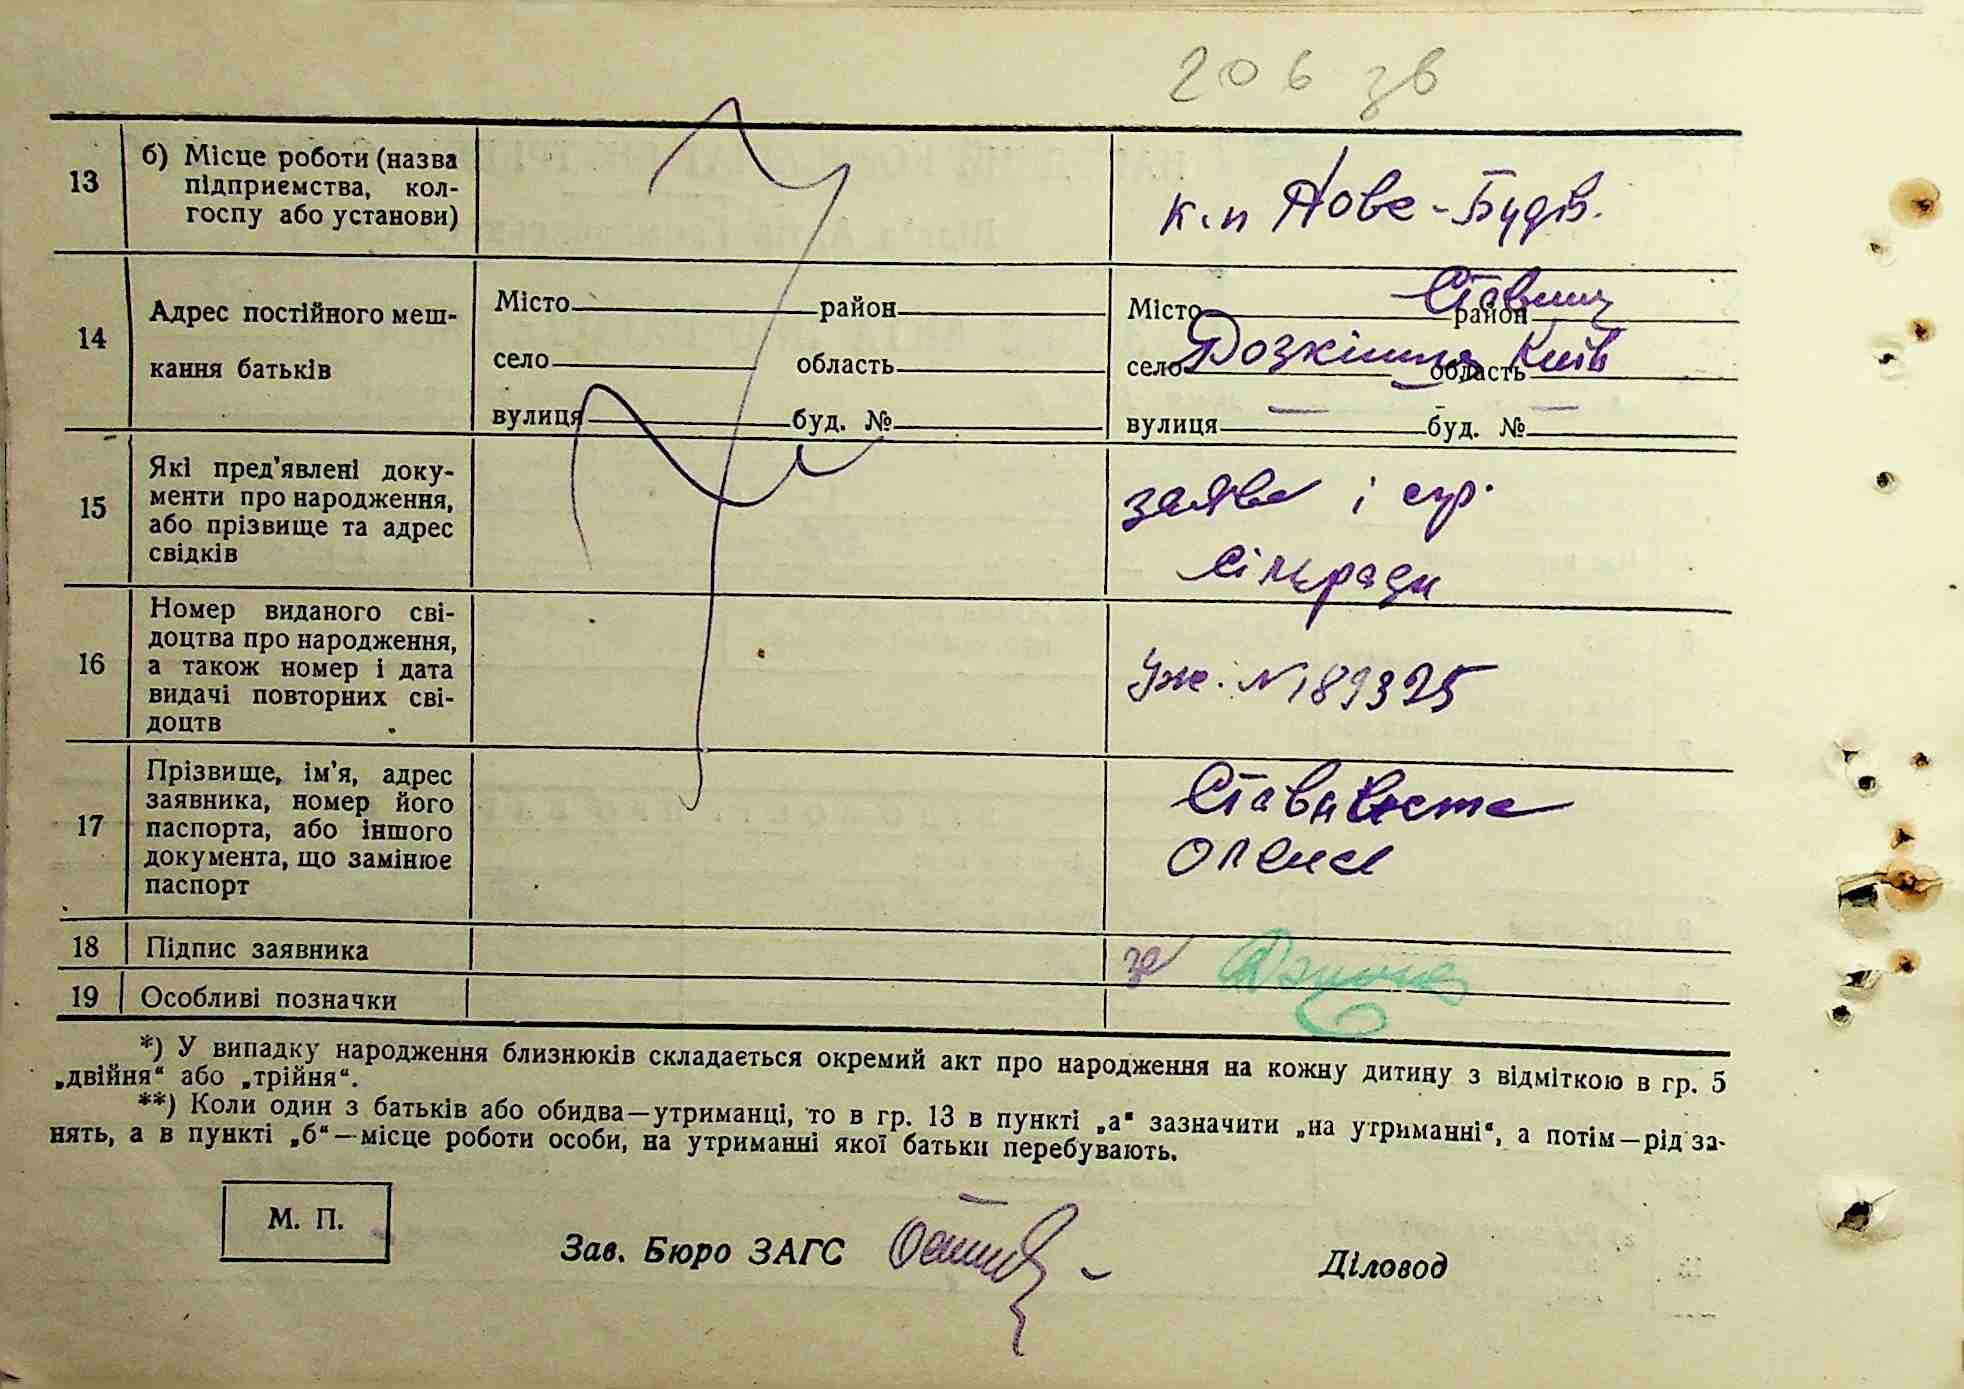 206 зв
13
б) Місце роботи (назва
підприємства, кол-
госпу або установи)
к-п Нове-Будів.
14
Адрес постійного меш-
кання батьків
Місто район
село область
вулиця буд. №
Місто район Ставищ
село область Київ
вулиця — буд. № —
15
Які пред'явлені доку-
менти про народження,
або прізвище та адрес
свідків
заява і спр.
сільради
16
Номер виданого сві-
доцтва про народження,
а також номер і дата
видачі повторних сві-
доцтв
Уж. N 189325
17
Прізвище, ім'я, адрес
заявника, номер його
паспорта, або іншого
документа, що замінює
паспорт
Олена
18
Підпис заявника
за
19
Особливі позначки
*) У випадку народження близнюків складається окремий акт про народження на кожну дитину з відміткою в гр. 5
„двійня“ або „трійня“.
**) Коли один з батьків або обидва—утриманці, то в гр. 13 в пункті „а“ зазначити „на утриманні“, а потім—рід за-
нять, а в пункті „б“—місце роботи особи, на утриманні якої батьки перебувають.
М. П.
Зав. Бюро ЗАГС
Діловод